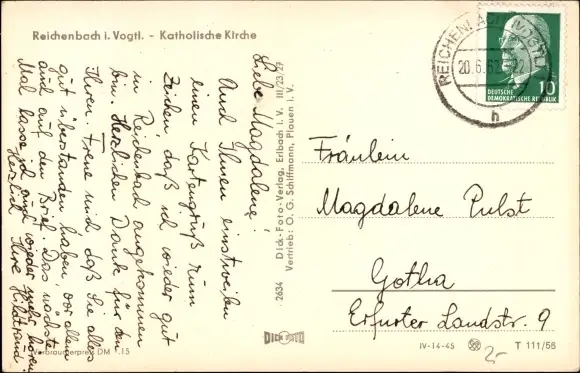 Reichenbach i. Vogtl. - Katholische Kirche
Liebe Magdalene!
Und Ihnen einstweilen
einen Kartengruß zum
Zeichen daß ich wieder gut
in Reichenbach angekommen
bin. Herzlichen Dank für den
Ihren. Freue mich daß Sie alles
gut überstanden haben, vor allem
auch auf den Brief. Das nächste
Mal lasse ich auch wieder mehr hören.
Herzlich Ihre Hiltraud
Verbraucherpreis DM -.15
2634 Dick-Foto-Verlag, Erlbach i. V. III/23/29
Vertrieb: O. G. Schiffmann, Plauen i. V.
DICK
REICHENBACH (VOGTL)
20.6.62
h
DEUTSCHE
DEMOKRATISCHE REPUBLIK
10
Fräulein
Magdalene Pulst
Gotha
Erfurter Landstr. 9
IV-14-45
T 111/56
2-